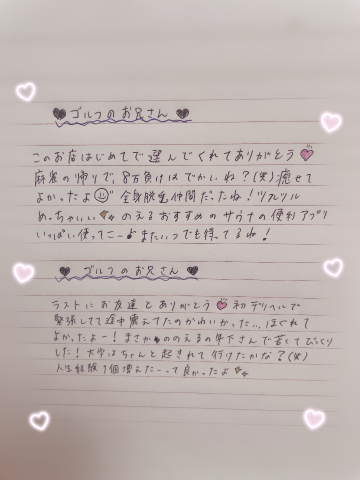 ♥ ゴルフのお兄さん ♥
このお店はじめてで選んでくれてありがとう💗
麻雀の帰りで、8万負けはでかいね?(笑)癒せて
よかったよ☺全身脱毛仲間だったね!ツルツル
めっちゃいい♥のえるおすすめのサウナの便利アプリ
いっぱい使ってこー♪またいつでも待ってるね!
♥ ゴルフのお兄さん ♥
ラストにお友達とありがとう💗初デリヘルで
緊張してて途中震えてたのかわいかった…ほぐれて
よかったよー!まさか♥ののえるの年下さんで若くてびっくり
した!大学はちゃんと起きれて行けたかな?(笑)
人生経験1個増えたーって良かったよ